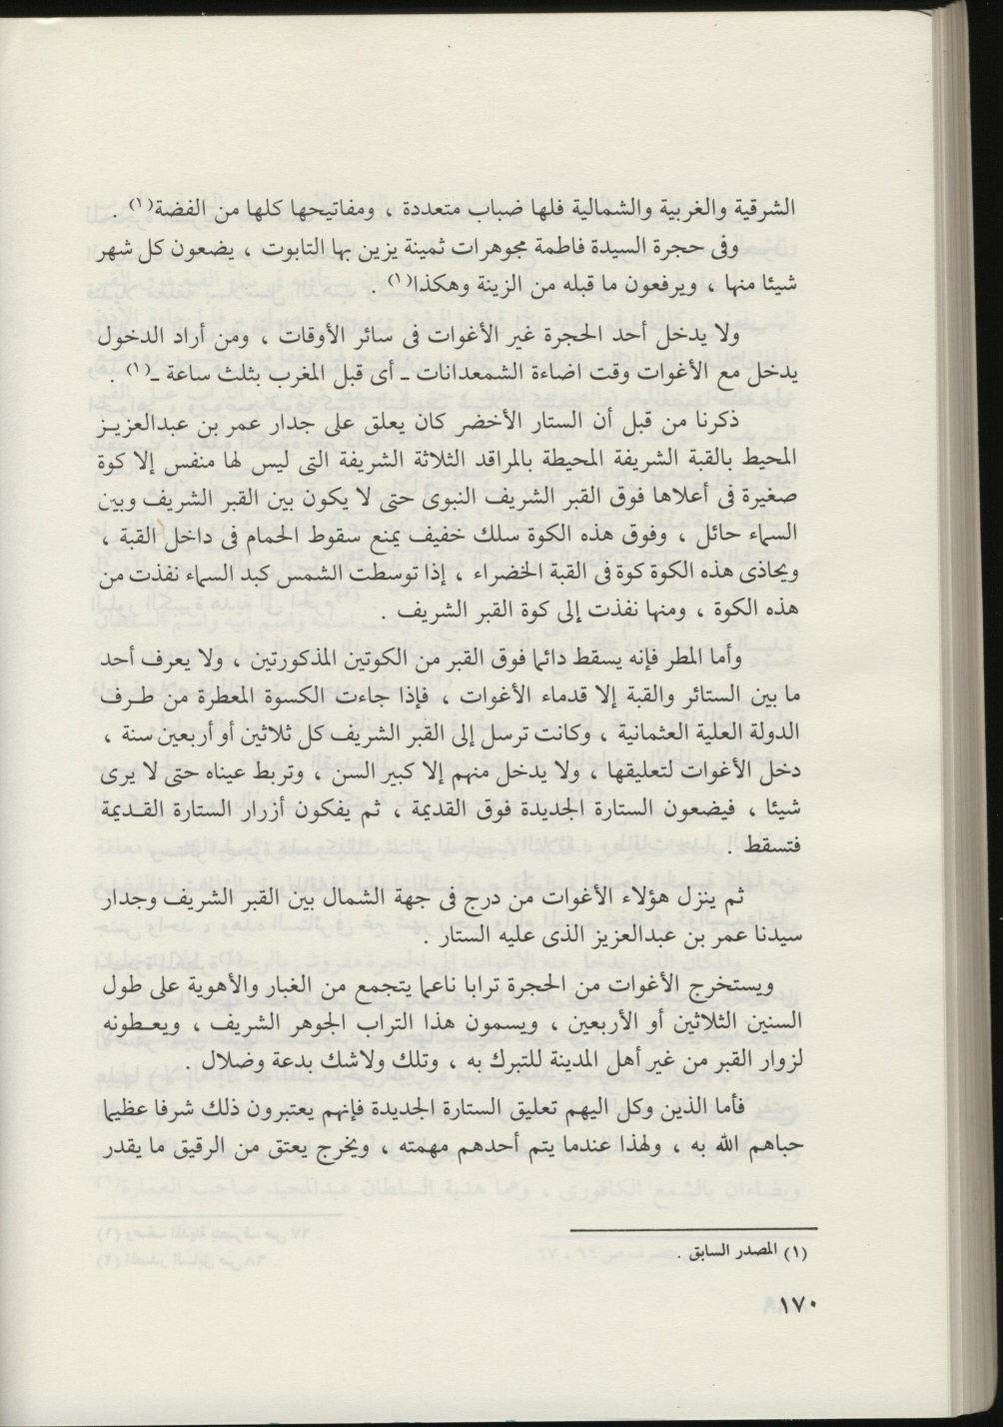 الشرقية والغربية والشمالية فلها ضباب متعددة ، ومفاتيحها كلها من الفضة(١) .
وفى حجرة السيدة فاطمة مجوهرات ثمينة يزين بها التابوت ، يضعون كل شهر
شيئا منها ، ويرفعون ما قبله من الزينة وهكذا(١) .
ولا يدخل أحد الحجرة غير الأغوات فى سائر الأوقات ، ومن أراد الدخول
يدخل مع الأغوات وقت اضاءة الشمعدانات ـ أى قبل المغرب بثلث ساعة ـ(١) .
ذكرنا من قبل أن الستار الأخضر كان يعلق على جدار عمر بن عبدالعزيـز
المحيط بالقبة الشريفة المحيطة بالمراقد الثلاثة الشريفة التى ليس لها منفس إلا كوة
صغيرة فى أعلاها فوق القبر الشريف النبوى حتى لا يكون بين القبر الشريف وبين
السماء حائل ، وفوق هذه الكوة سلك خفيف يمنع سقوط الحمام فى داخل القبة ،
ويحاذى هذه الكوة كوة فى القبة الخضراء ، إذا توسطت الشمس كبد السماء نفذت من
هذه الكوة ، ومنها نفذت إلى كوة القبر الشريف .
وأما المطر فإنه يسقط دائما فوق القبر من الكوتين المذكورتين ، ولا يعرف أحد
ما بين الستائر والقبة إلا قدماء الأغوات ، فإذا جاءت الكسوة المعطرة من طـرف
الدولة العلية العثمانية ، وكانت ترسل إلى القبر الشريف كل ثلاثين أو أربعين سنة ،
دخل الأغوات لتعليقها ، ولا يدخل منهم إلا كبير السن ، وتربط عيناه حتى لا يرى
شيئا ، فيضعون الستارة الجديدة فوق القديمة ، ثم يفكون أزرار الستارة القـديمة
فتسقط .
ثم ينزل هؤلاء الأغوات من درج فى جهة الشمال بين القبر الشريف وجدار
سيدنا عمر بن عبدالعزيز الذى عليه الستار .
ويستخرج الأغوات من الحجرة ترابا ناعما يتجمع من الغبار والأهوية على طول
السنين الثلاثين أو الأربعين ، ويسمون هذا التراب الجوهر الشريف ، ويعـطونه
لزوار القبر من غير أهل المدينة للتبرك به ، وتلك ولاشك بدعة وضلال .
فأما الذين وكل اليهم تعليق الستارة الجديدة فإنهم يعتبرون ذلك شرفا عظيما
حباهم الله به ، ولهذا عندما يتم أحدهم مهمته ، ويخرج يعتق من الرقيق ما يقدر
(١) المصدر السابق .
١٧٠